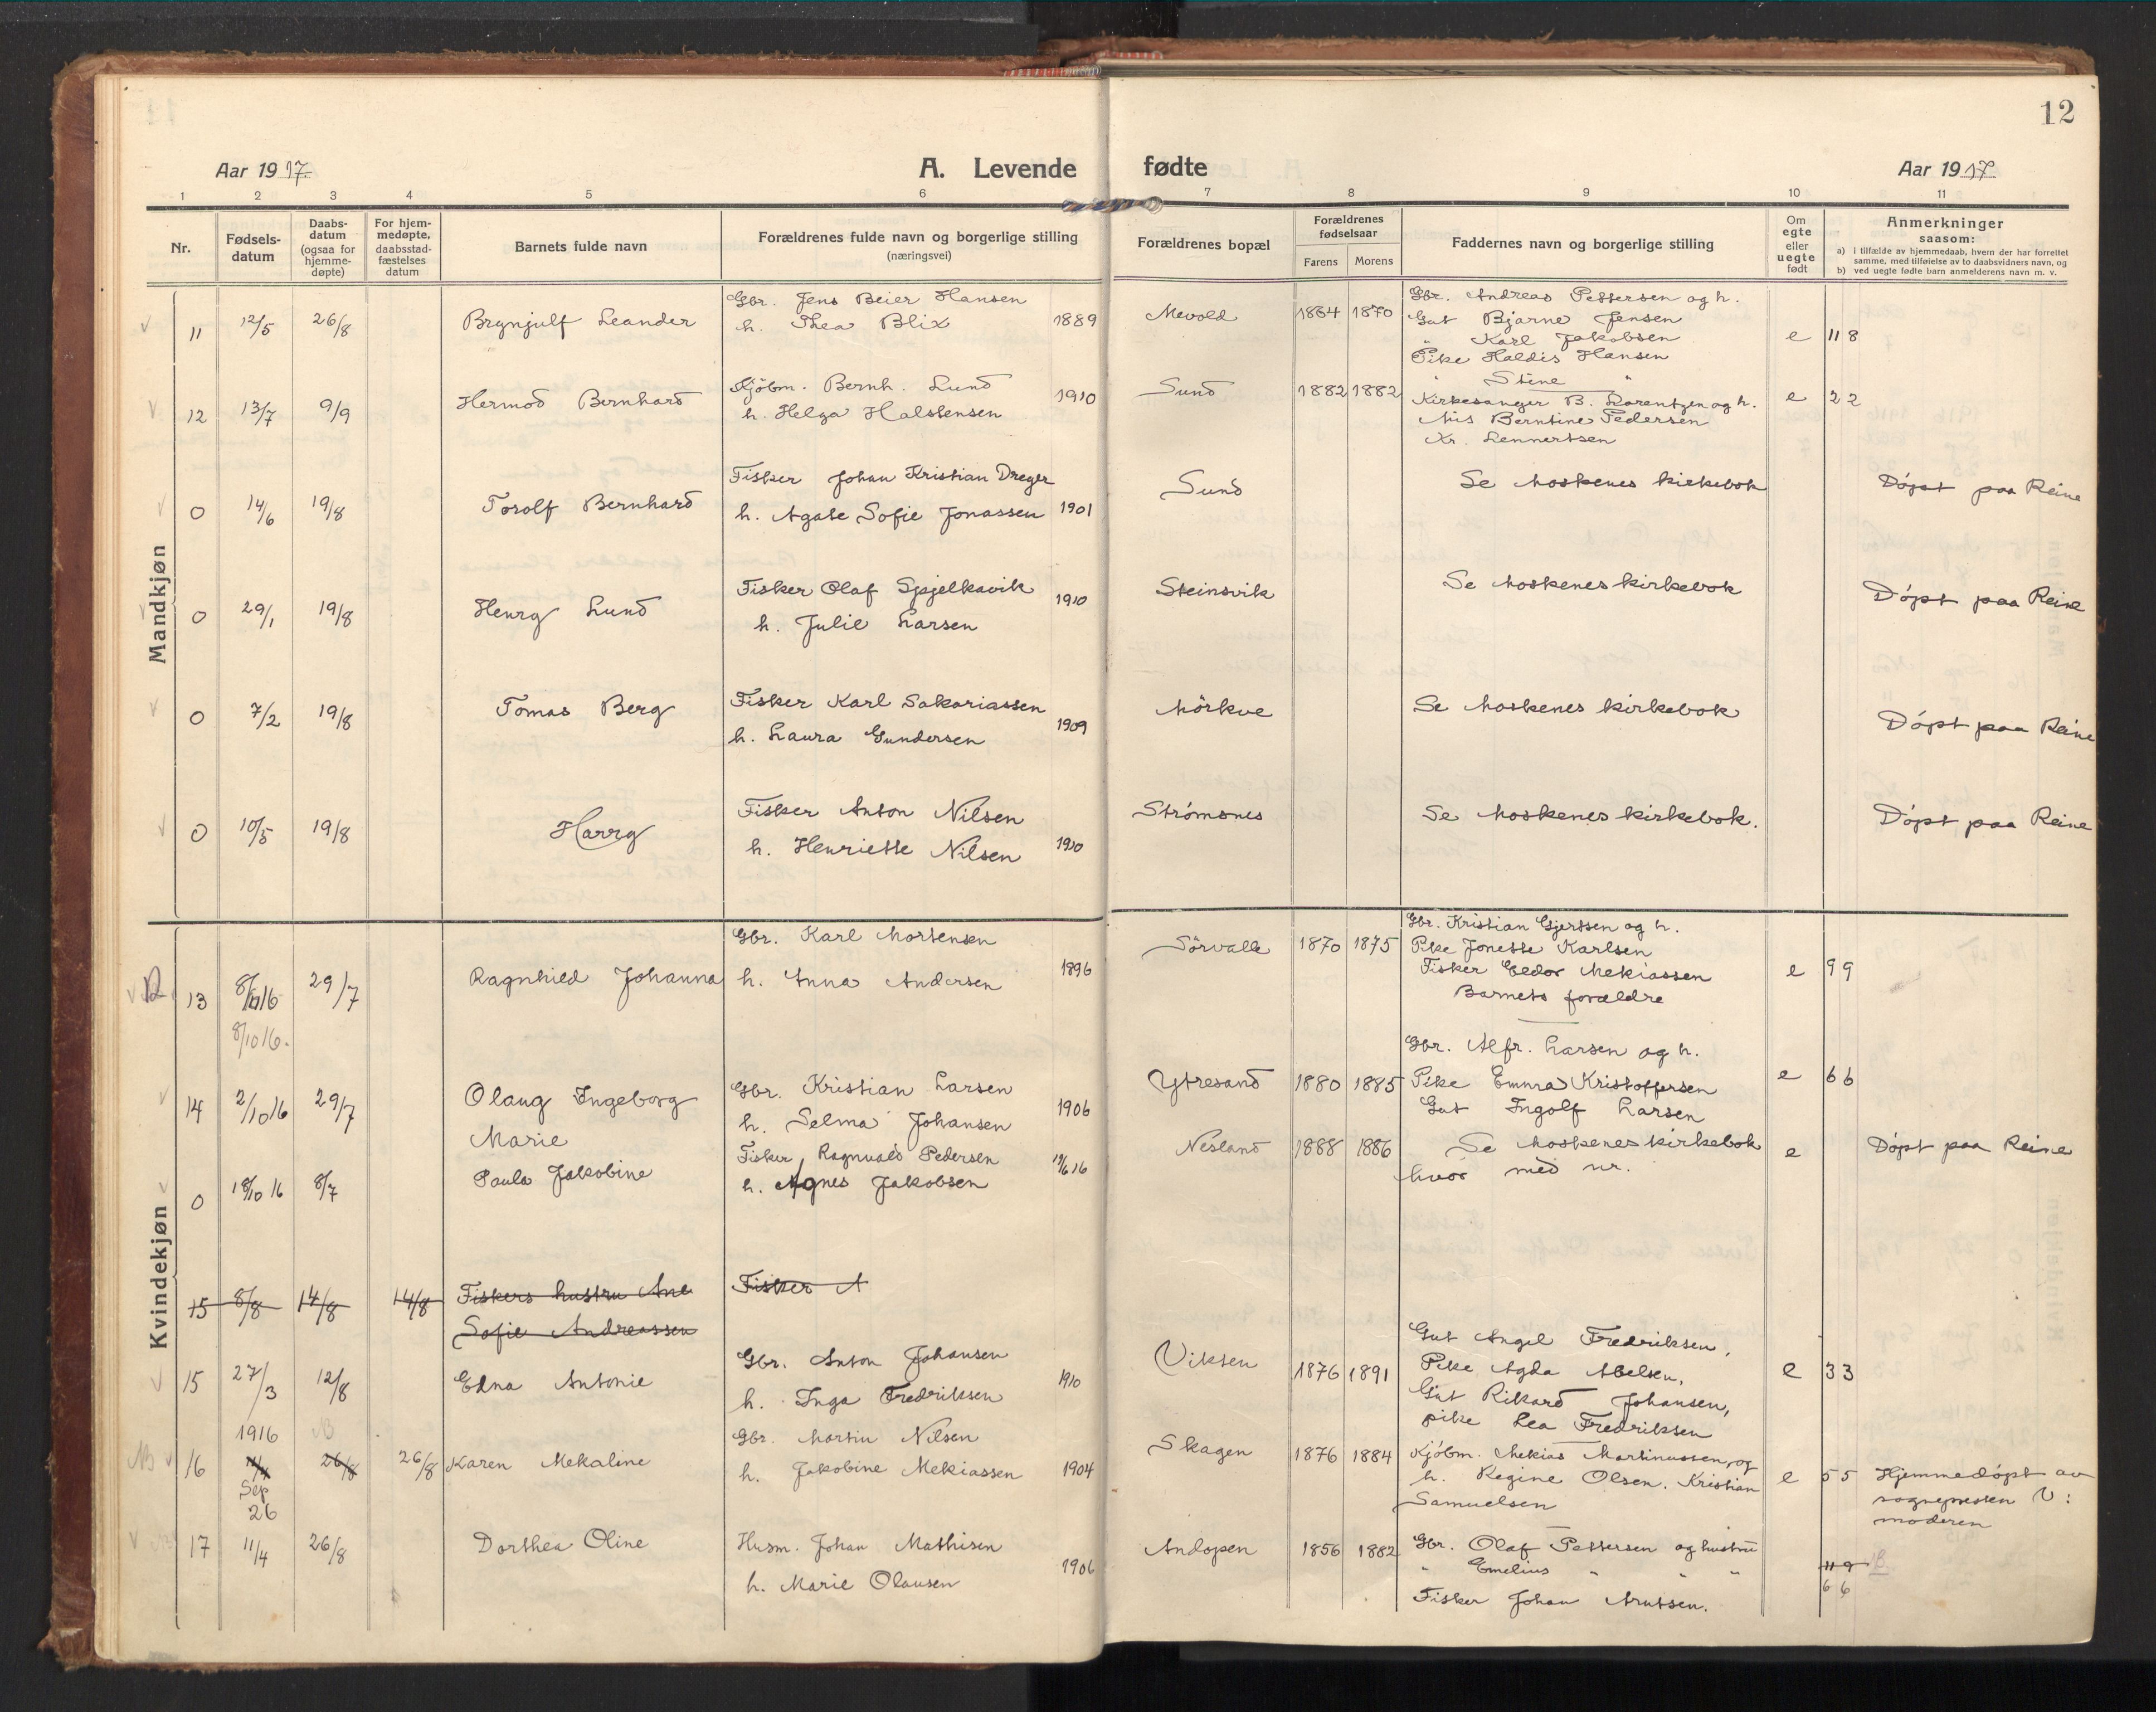 12
Aar 1917 A. Levende fødte Aar 1917
1 2 3 4 5 6 7 8 9 10 11
Nr.
Fødsels-
datum
Daabs-
datum
(ogsaa for
hjemme-
døpte)
For hjem-
medøpte,
daabsstad-
fæstelses
datum
Barnets fulde navn
Forældrenes fulde navn og borgerlige stilling
(næringsvei)
Forældrenes bopæl
Forældrenes
fødselsaar
Farens Morens
Faddernes navn og borgerlige stilling
Om
egte
eller
uegte
født
Anmerkninger
saasom:
a) i tilfælde av hjemmedaab, hvem der har forrettet
samme, med tilføielse av to daabsvidners navn, og
b) ved uegte fødte barn anmelderens navn m. v.
Mandkjøn
11 12/5 26/8 Brynjulf Leander
Gbr. Jens Beier Hansen
h. Thea Blix 1889
Mevold 1864 1870
Gbr. Andreas Pettersen og h.
Gut Bjarne Jensen
" Karl Jakobsen
Pike Haldis Hansen
" Stine "
e 11 8
12 13/7 9/9 Hermod Bernhard
Kjöbm. Bernh. Lund
h. Helga Halstensen 1910
Sund 1882 1882
Kirkesanger B. Lorentzen og h.
Mis Berntine Pedersen
Kr. Lennertsen
e 2 2
0 14/6 19/8 Torolf Bernhard
Fisker Johan Kristian Dreyer
h. Agate Sofie Jonassen 1901
Sund
Se Moskenes kirkebok
Döpt paa Reine
0 29/1 19/8 Henry Lund
Fisker Olaf Spjelkavik
h. Julie Larsen 1910
Steinsvik
Se Moskenes kirkebok
Döpt paa Reine
0 7/2 19/8 Tomas Berg
Fisker Karl Sakariassen
h. Laura Gundersen 1909
Mörkve
Se Moskenes kirkebok
Döpt paa Reine
0 10/5 19/8 Harry
Fisker Anton Nilsen
h. Henriette Nilsen 1910
Strömsnes
Se Moskenes kirkebok.
Döpt paa Reine
Kvindekjøn
13 8/10 16 29/7 Ragnhild Johanna
8/10 16.
Gbr. Karl Mortensen
h. Anna Andersen 1896
Sörvalle 1870 1875
Gbr. Kristian Gjertsen og h.
Pike Jonette Karlsen
Fisker Eldor Mekiassen
Barnets forældre
e 9 9
14 2/10 16 29/7 Olaug Ingeborg
Marie
Gbr. Kristian Larsen
h. Selma Johansen 1906
Ytresand 1880 1885
Gbr. Alfr. Larsen og h.
Pike Emma Kristoffersen
Gut Ingolf Larsen
e 6 6
0 18/10 16 8/7 Paula Jakobine
Fisker Ragnvald Pedersen
h. Agnes Jakobsen 19/6 16
Nesland 1888 1886
Se Moskenes kirkebok
hvor med nr.
e
Döpt paa Reine
15 8/8 14/8 14/8 Fiskers hustru Ane
Sofie Andreassen
Fisker A
15 27/3 12/8 Edna Antonie
Gbr. Anton Johansen
h. Inga Fredriksen 1910
Viksen 1876 1891
Gut Angel Fredriksen,
Pike Agda Abelsen,
Gut Rikard Johansen,
pike Lea Fredriksen
e 3 3
1916
16 11/4 26/8 26/8 Karen Mekaline
Sep
26
Gbr. Martin Nilsen
h. Jakobine Mekiassen 1904
Skagen 1876 1884
Kjöbm. Mekias Martinussen, og
h. Regine Olsen. Kristian
Samuelsen
e 5 5
Hjemmedöpt av
sognepresten V:
moderen
17 11/4 26/8 Dorthea Oline
Husm. Johan Mathisen
h. Marie Olausen 1906
Andopen 1856 1882
Gbr. Olaf Pettersen og hustru
" Emelius " " "
Fisker Johan Arntsen.
11 9
6 6